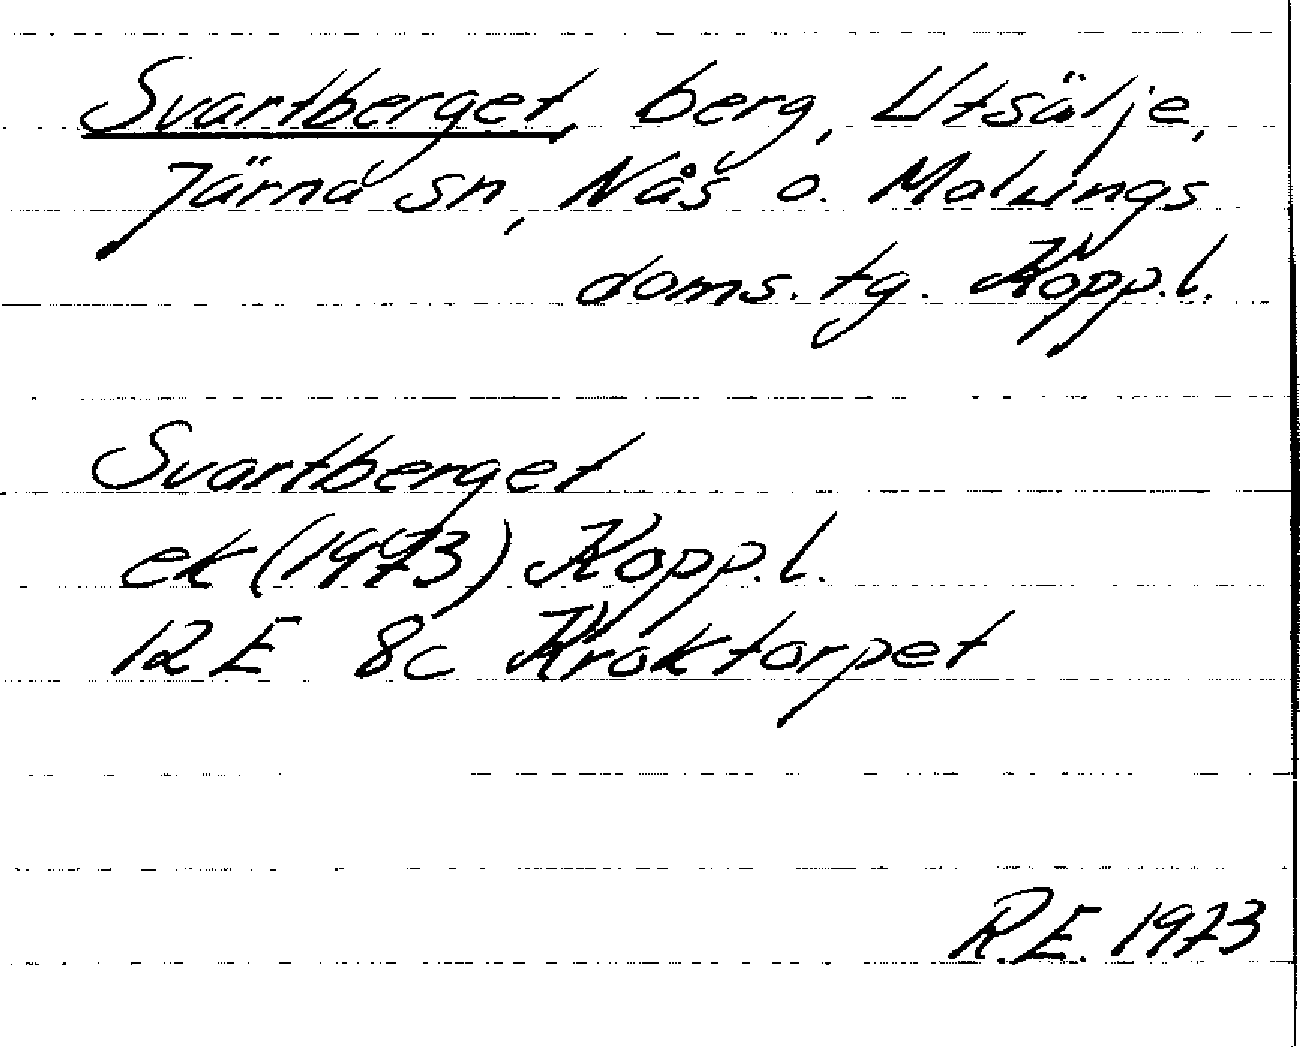 Svartberget, berg, Utsälje,
Järna sn, Nås o. Malungs
doms. tg. Kopp.l.
Svartberget
ek (1973) Kopp.l.
12E 8c Kroktorpet
R.E. 1973